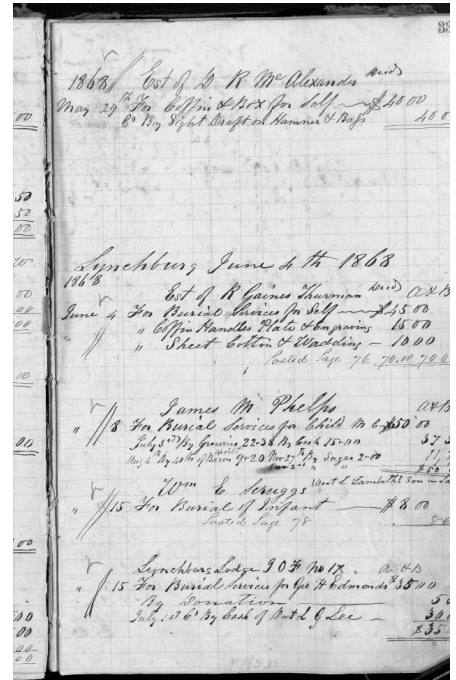 33
1868 Est of D R McAlexander Decd
May 29th For Coffin & Box for Self — $40 00
Cr By Sight Draft on Hamner & Bags 40 0
Lynchburg June 4th 1868
1868
Est of R Gaines Thurman Decd A & B
June 4 For Burial Services for Self — $45 00
" Coffin Handles Plate & Engraving 15 00
" Sheet Cotton & Wadding — 10 00
Posted Page 76 70.00 70 0
James M Phelps A & B
" 8 For Burial Services for Child M C $50 00
July 3rd By Groceries 22.38 By Cash 15.00 37 3
Aug 4th By of Bacon 9.20 Nov 27th By Sugar 2.00 11
$50
Wm E Scruggs Lambeths Son in La
" 15 For Burial of Infant — $8 00
Posted Page 78
Lynchburg Lodge I O F No 17 A & B
" 15 For Burial Services for H Edmonds $35 00
By Donation 5
July 1st Cr By Cash of L G Lee — 30
$35